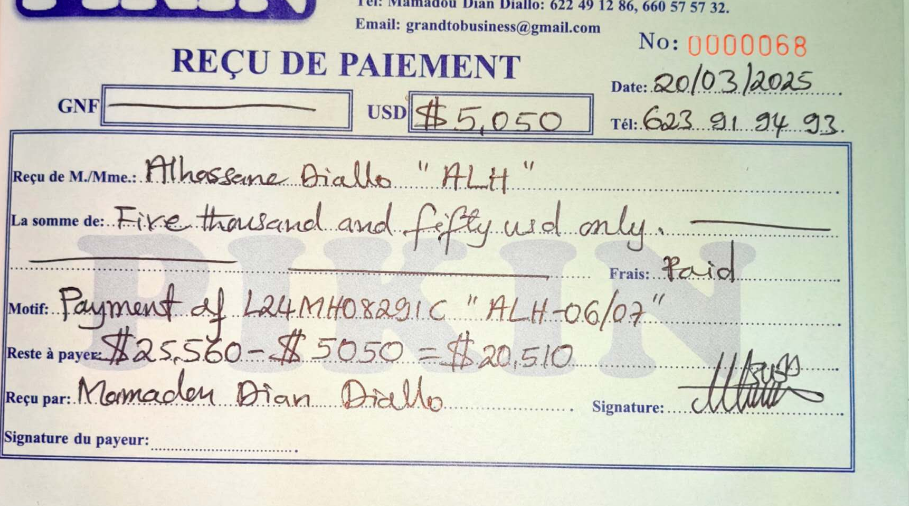 PIKIN
Tel: Mamadou Dian Diallo: 622 49 12 86, 660 57 57 32.
Email: grandtobusiness@gmail.com
No: 0000068
REÇU DE PAIEMENT
Date: 20/03/2025
GNF
USD $5,050
Tél: 623 91 94 93.
Reçu de M./Mme.: Alhassane Diallo "ALH"
La somme de: Five thousand and fifty usd only.
Frais: Paid
PIKIN
Motif: Payment of L24MH08291C "ALH-06/07"
Reste à payer: $25,560 - $5050 = $20,510
Reçu par: Mamadou Dian Diallo
Signature:
Signature du payeur: